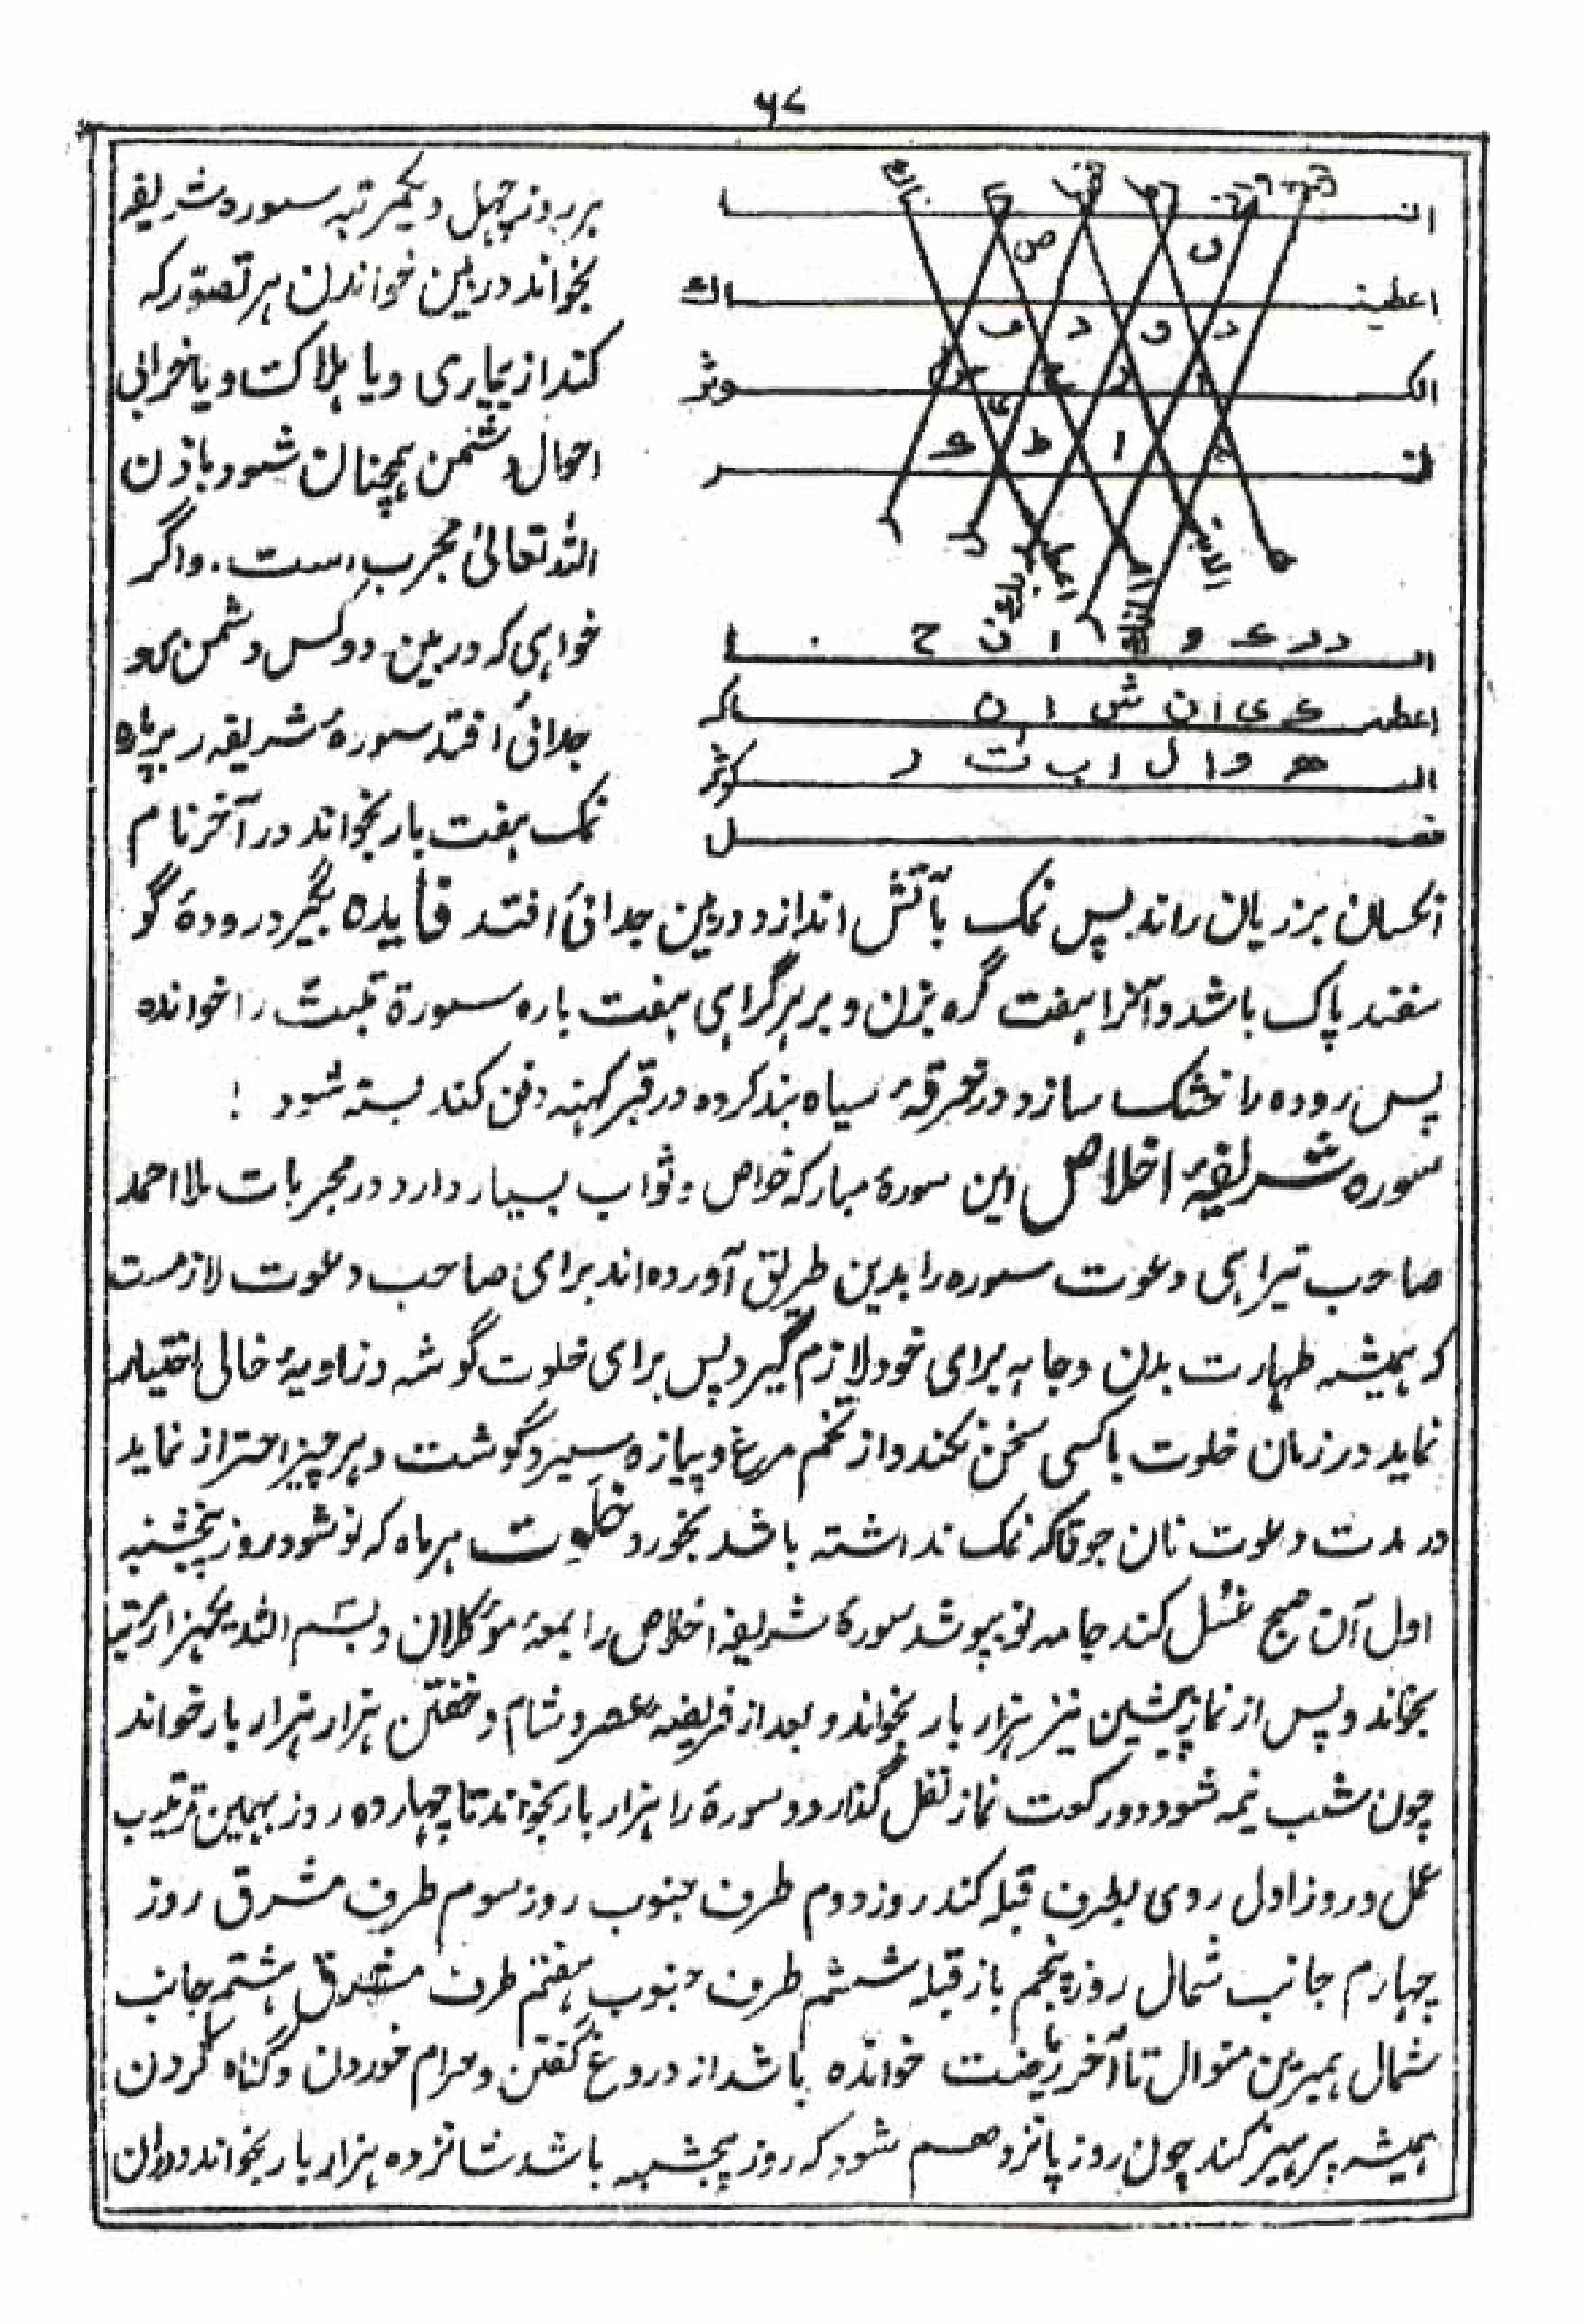 ۶۷
هر روز چهل و یکمرتبه سوره شریفه
بخواند در بین خواندن هر تصور که
کند از بیماری و یا هلاکت و یا خرابی
احوال دشمن همچنان شود باذن
الله تعالی مجرب است. واگر
خواهی که در بین دو کس دشمنی و
جدائی افتد سورهٔ شریفه ر بر
نمک هفت بار بخواند در آخر نام
انا
اعطینـ ـاک
الکـ ـوثر
فـ ـر
ص ں
ف د و د
ع ط ا
د د ع و ا ن ح
ع ی ا ن ش ا ن
ه و ا ل ا ب ت ر
اعطیـ ـناکـ
الـ ـکوثر
فصـ ـل
آنکسان بر زبان راند پس نمک بآتش اندازد در بین جدائی افتد فأیده بگیر د رودهٔ گو
سفند پاک باشد و آنرا هفت گره بزن و بر هر گراهی هفت باره سورة تبت را خوانده
پس روده را خشک سازد در خرقهٔ سیاه بند کرده در قبر کهنه دفن کند بسته شود !
سوره شریفهٔ اخلاص این سورهٔ مبارکه خواص و ثواب بسیار دارد در مجربات ملا احمد
صاحب تیراهی دعوت سوره را بدین طریق آورده اند برای صاحب دعوت لازمست
که همیشه طهارت بدن وجامه برای خود لازم گیرد پس برای خلوت گوشه و زاویهٔ خالی اختیار
نماید در زمان خلوت با کسی سخن نکند و از تخم مرغ و پیازه و سیر و گوشت و هر چیز احتراز نماید
در مدت دعوت نان جو قاکه نمک نداشته باشد بخورد خلوت هر ماه که نو شود روز پنجشنبه
اول آن صبح غسل کند جامه نو بپوشد سورهٔ شریفه اخلاص را بمعهٔ مؤکلان و بسم الله یکهزار مرتبه
بخاند و پس از نماز پیشین نیز هزار بار بخواند و بعد از فریضهٔ عصر و شام و خفتن هزار هزار بار خواند
چون شب نیمه شود دو رکعت نماز نفل گذارد و سورهٔ را هزار بار بخواند تا چهارده روز بهمین ترتیب
عمل و روز اول روی بطرف قبله کند روز دوم طرف جنوب روز سوم طرف مشرق روز
چهارم جانب شمال روز پنجم باز قبله ششم طرف جنوب هفتم طرف مشرق هشتم جانب
شمال همیرین منوال تا آخر ریاضت خوانده باشد از دروغ گفتن و حرام خوردن و گناه کردن
همیشه پرهیز کند چون روز پانزدهم شود که روز پنجشبه باشد شانزده هزار بار بخواند و دران